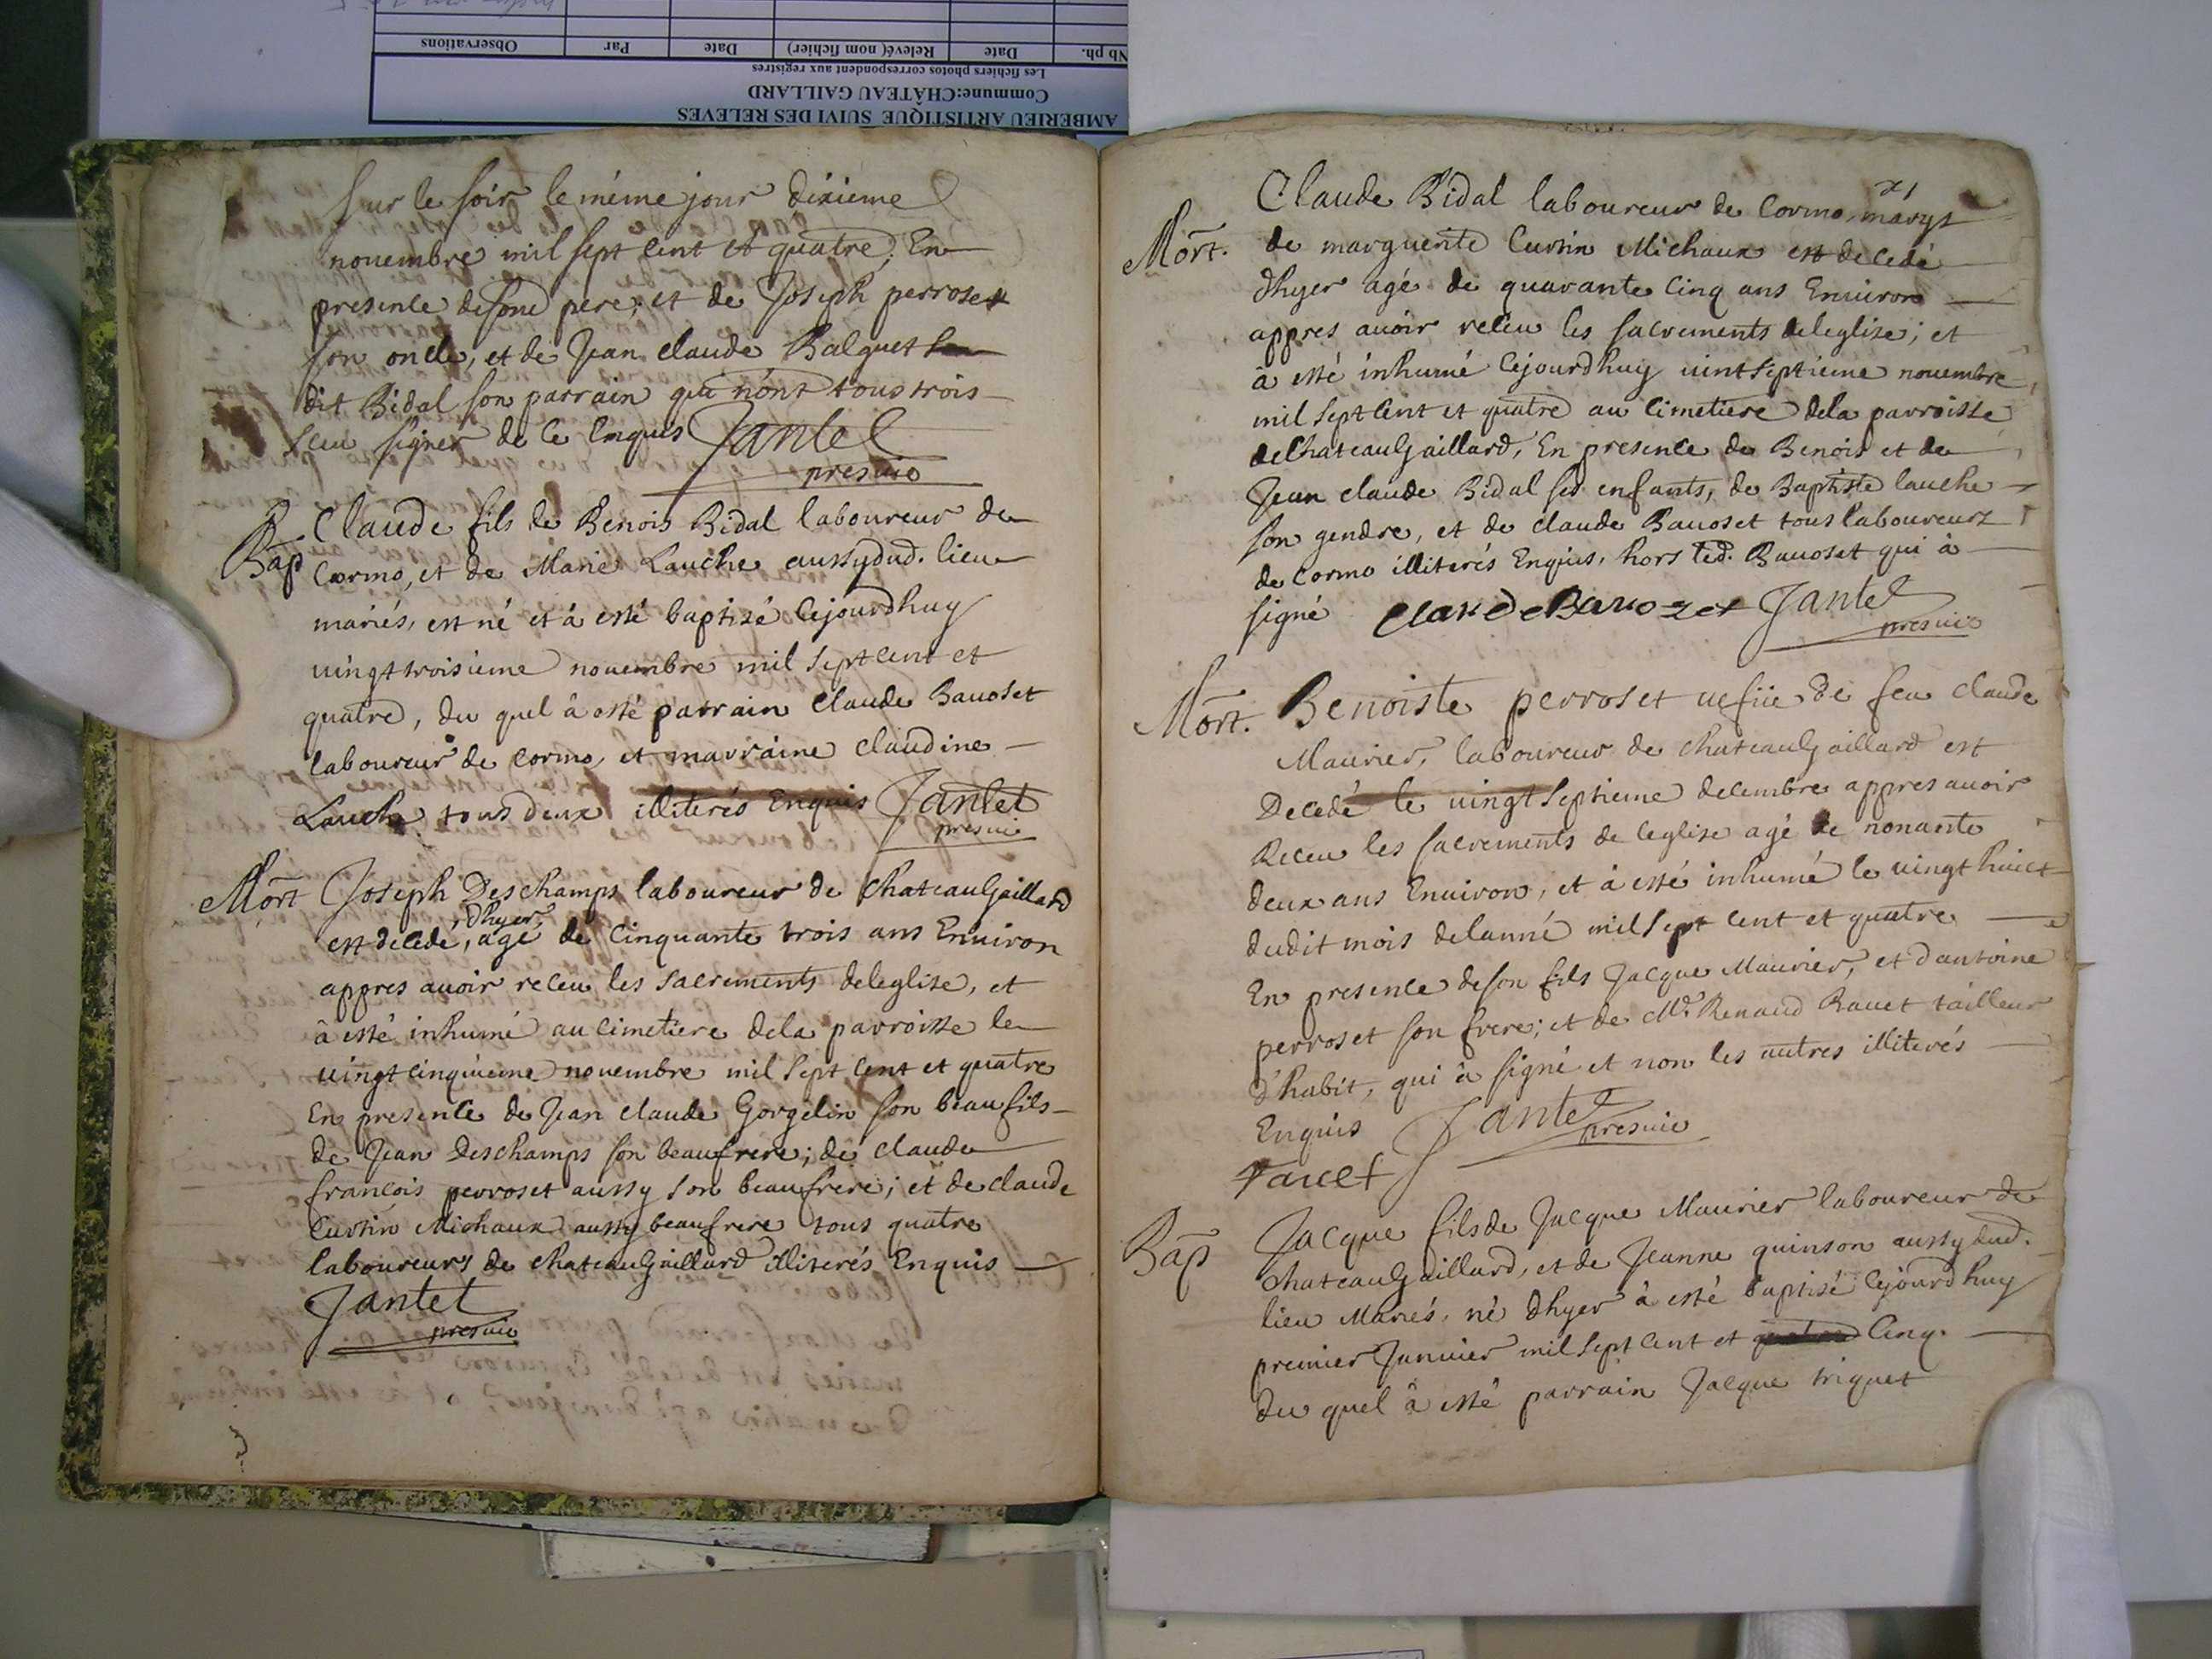 AMBERIEU ARTISTIQUE SUIVI DES RELEVES
Commune: CHÂTEAU GAILLARD
Les fichiers photos correspondent aux registres
Nb ph. Date Relevé (nom fichier) Date Par Observations
sur le soir le même jour dixieme
nouembre mil sept cent et quatre; En
presence de son pere; et de Joseph perroset
son oncle; et de Jean claude Balquet
dit Bidal son parrain qui n'ont tous trois
sceu signer de ce Enquis Jantet
presuic
Bap
Claude fils de Benois Bidal laboureur de
Cormo, et de Marie Lauche aussy dud. lieu
mariés, est né et à esté baptisé cejourdhuy
uingt troisieme nouembre mil sept cent et
quatre, du quel à esté parrain Claude Bauoset
laboureur de Cormo, et marraine Claudine
Lauche tous deux illiterés Enquis Jantet
presuic
Mort
Joseph Deschamps laboureur de chateauGaillard
dhyer
est decedé, agé de Cinquante trois ans Enuiron
appres auoir receu les sacrements deleglise, et
à esté inhumé au cimetiere dela parroisse le
uingt cinquieme nouembre mil sept cent et quatre
En presence de Jean claude Gorgelin son beau fils
de Jean Deschamps son beaufrere; de claude
françois perroset aussy son beaufrere; et de claude
Curtin Michaux aussy beaufrere tous quatre
laboureurs de chateauGaillard illiterés Enquis
Jantet
presuic
21
Mort.
Claude Bidal laboureur de Cormo, marys
de marguerite Curtin Michaux est decedé
dhyer agé de quarante cinq ans Enuiron
appres auoir receu les sacrements deleglise; et
à esté inhumé cejourdhuy uint septieme nouembre
mil sept cent et quatre au cimetiere dela parroisse
de chateauGaillard, En presence de Benois et de
Jean claude Bidal ses enfants, de Baptiste lauche
son gendre, et de claude Bauoset tous laboureurs
de Cormo illiterés Enquis, hors led. Bauoset qui à
signé Claude Bauozet Jantet
presuic
Mort.
Benoiste perroset uefue de feu claude
Maurier, laboureur de chateauGaillard est
Decedé le uingt septieme decembre appres auoir
Receu les sacrements de leglise agé de nonante
deux ans Enuiron, et à esté inhumé le uingt huict
dudit mois delanné mil sept cent et quatre
En presence de son fils Jacque Maurier, et d'antoine
perroset son frere; et de Mr. Renaud Rauet tailleur
d'habit, qui à signé et non les autres illiterés
Enquis Jantet
presuic
Rauet
Bap
Jacque fils de Jacque Maurier laboureur de
chateauGaillard, et de Jeanne quinson aussy dud.
lieu Mariés, né dhyer à esté baptisé cejourdhuy
premier Januier mil sept cent et quatre Cinq.
du quel à esté parrain Jacque triquet